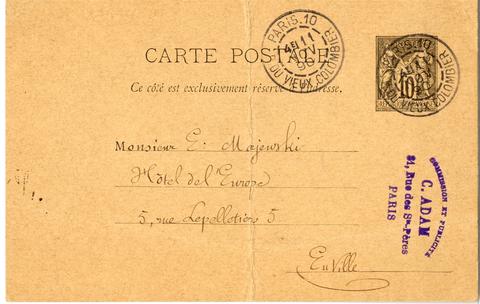 PARIS.10
R. DU VIEUX COLOMBIER
CARTE POSTALE
Ce côté est exclusivement réservé à l'adresse.
10
R. DU VIEUX COLOMBIER
Monsieur E. Majewski
Hôtel de l'Europe
5, rue Lepelletier 5
En Ville
COMMISSION ET PUBLICITÉ
C. ADAM
31, Rue des Sts-Pères
PARIS